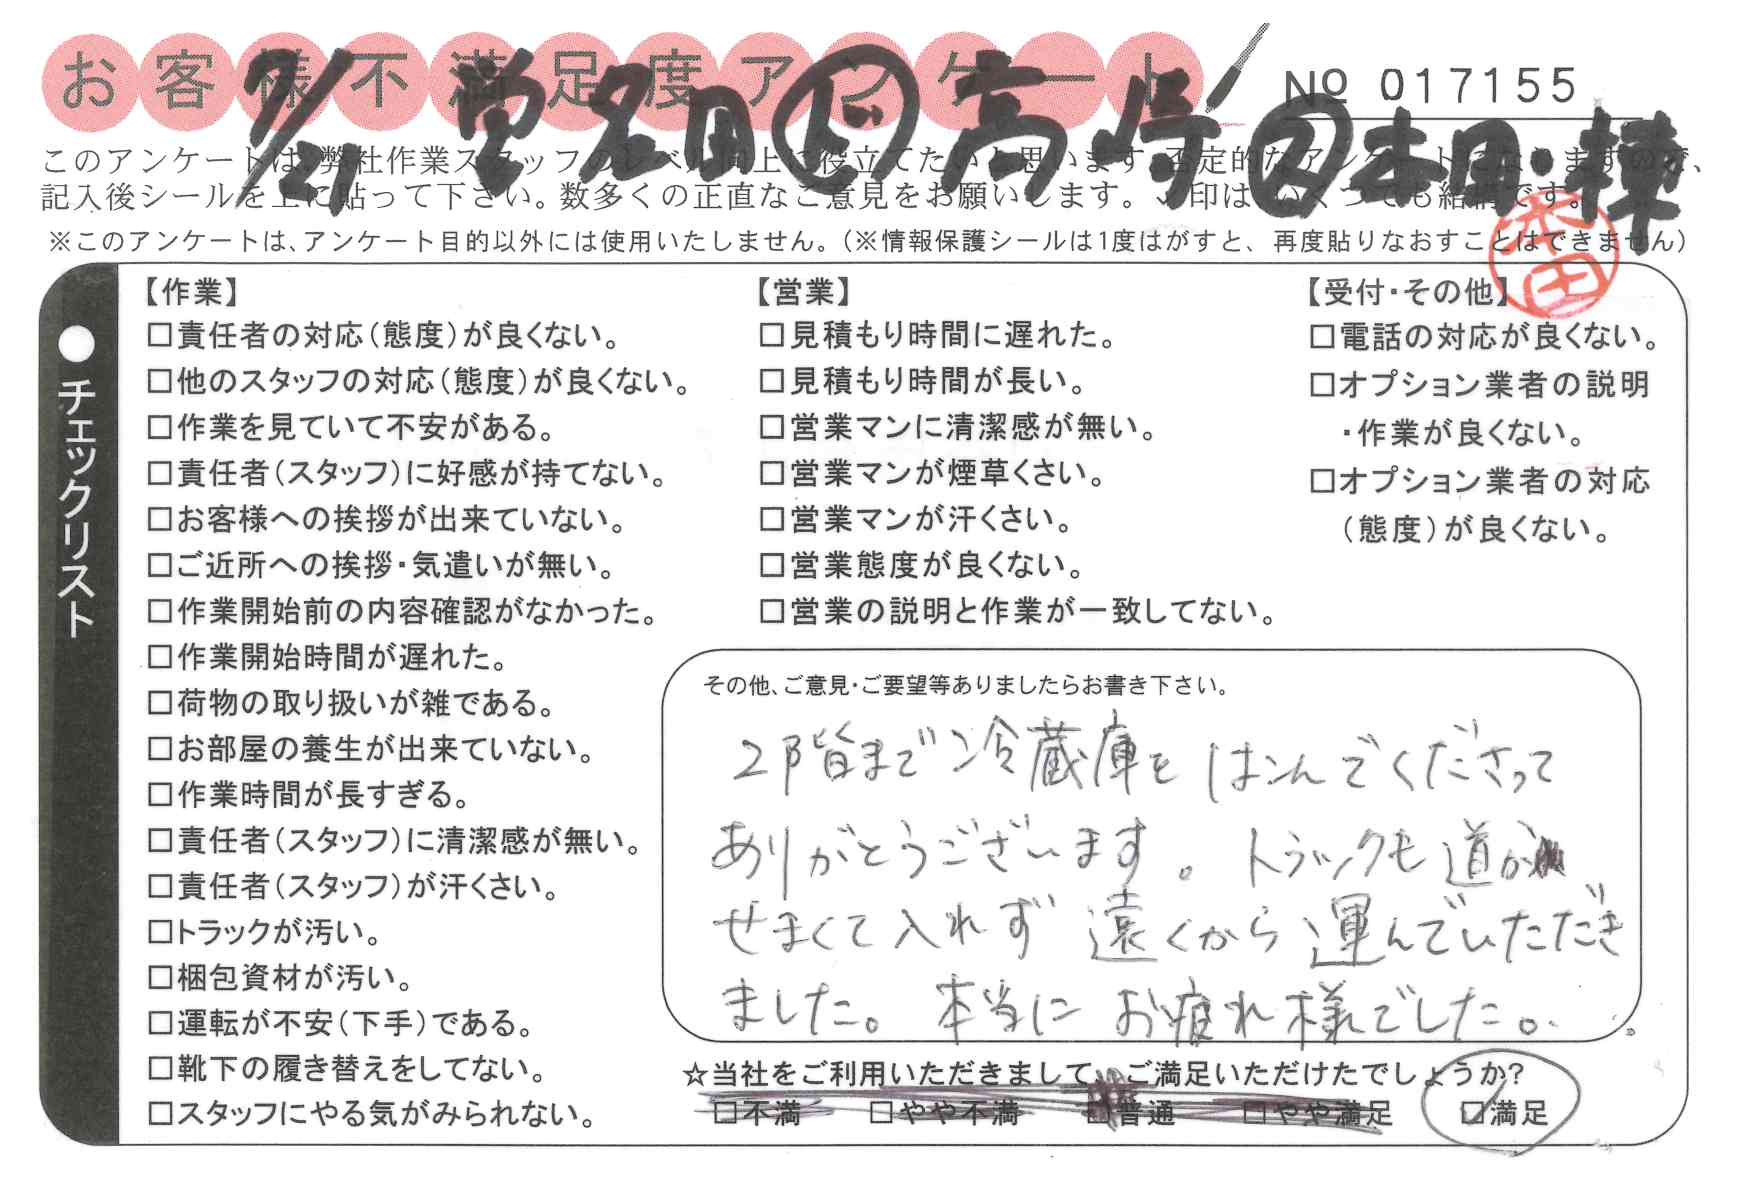 お客様不満足度アンケート
№ 017155
7/21 営 名和田 ド 高 時 ス 本田・棟
このアンケートは、弊社作業スタッフのレベル向上に役立てたいと思います。否定的なアンケートになりますので、
記入後シールを上に貼って下さい。数多くの正直なご意見をお願いします。✓印は、いくつでも結構です。
※このアンケートは、アンケート目的以外には使用いたしません。(※情報保護シールは1度はがすと、再度貼りなおすことはできません)
本田
●チェックリスト
【作業】
□責任者の対応(態度)が良くない。
□他のスタッフの対応(態度)が良くない。
□作業を見ていて不安がある。
□責任者(スタッフ)に好感が持てない。
□お客様への挨拶が出来ていない。
□ご近所への挨拶・気遣いが無い。
□作業開始前の内容確認がなかった。
□作業開始時間が遅れた。
□荷物の取り扱いが雑である。
□お部屋の養生が出来ていない。
□作業時間が長すぎる。
□責任者(スタッフ)に清潔感が無い。
□責任者(スタッフ)が汗くさい。
□トラックが汚い。
□梱包資材が汚い。
□運転が不安(下手)である。
□靴下の履き替えをしてない。
□スタッフにやる気がみられない。
【営業】
□見積もり時間に遅れた。
□見積もり時間が長い。
□営業マンに清潔感が無い。
□営業マンが煙草くさい。
□営業マンが汗くさい。
□営業態度が良くない。
□営業の説明と作業が一致してない。
【受付・その他】
□電話の対応が良くない。
□オプション業者の説明
・作業が良くない。
□オプション業者の対応
(態度)が良くない。
その他、ご意見・ご要望等ありましたらお書き下さい。
2階まで冷蔵庫をはこんでくださって
ありがとうございます。トラックも道が
せまくて入れず遠くから運んでいただき
ました。本当にお疲れ様でした。
☆当社をご利用いただきまして、ご満足いただけたでしょうか?
□不満 □やや不満 □普通 □やや満足 ☑満足